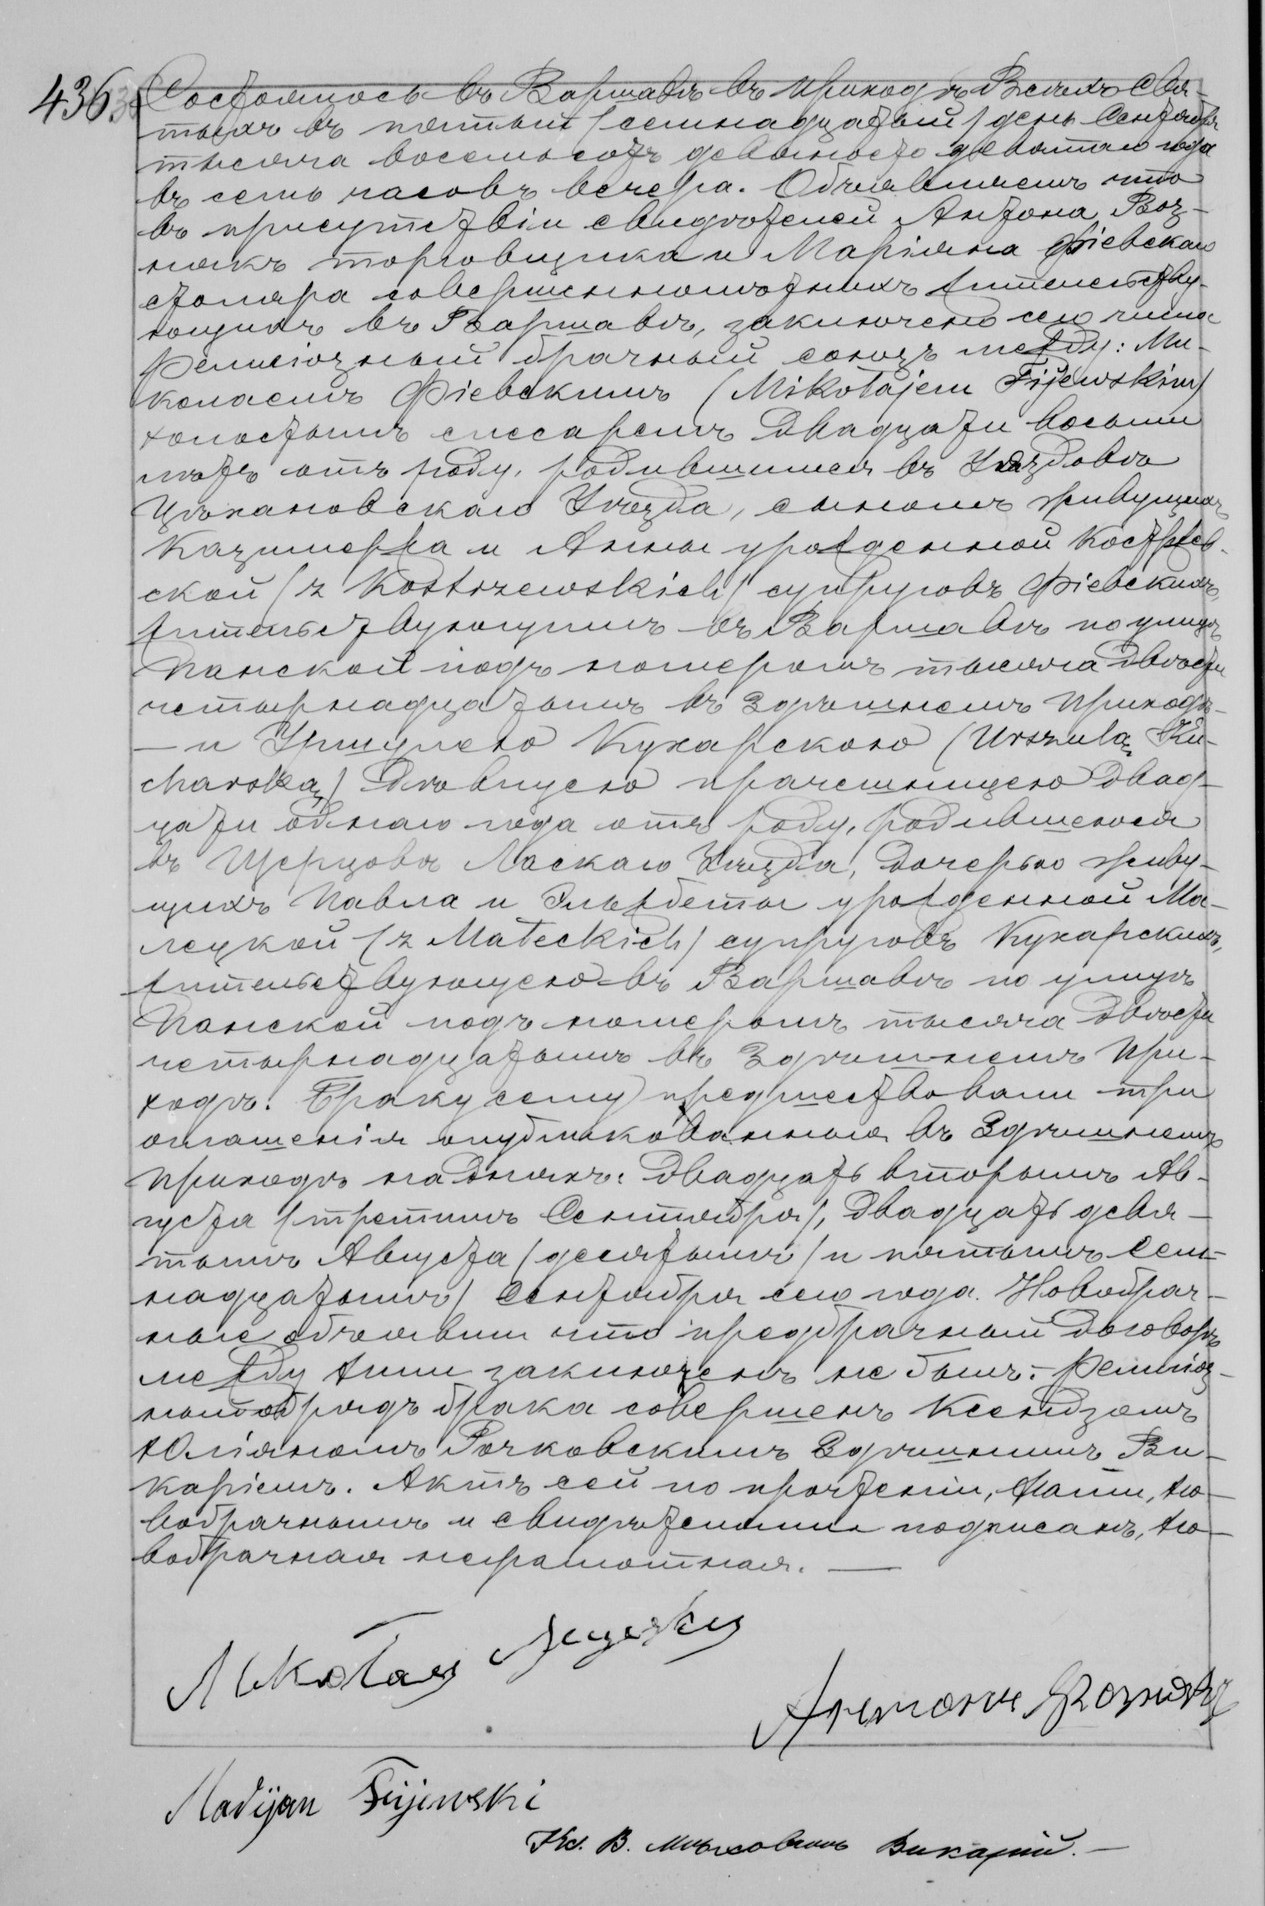 436 Состоялось въ Варшавѣ въ приходѣ Всѣхъ Свя-
тыхъ въ пятый /семнадцатый/ день Сентября
тысяча восемьсотъ девяносто девятаго года
въ семь часовъ вечера. Объявляемъ что
въ присутствіи свидѣтелей Антона Воз-
някъ торговщика и Маріяна Фіевскаго
столяра совершеннолѣтнихъ жительству-
ющихъ въ Варшавѣ, заключенъ сего числа
религіозный брачный союзъ между: Ми-
колаемъ Фіевскимъ (Mikołajem Fijewskim)
холостымъ слесаремъ двадцати восьми
лѣтъ отъ роду, родившимся въ Уяздовѣ
Цѣхановскаго Уѣзда, сыномъ живущихъ
Казимержа и Анны урожденной Костржев-
ской (z Kostrzewskich) супруговъ Фіевскихъ,
жительствующимъ въ Варшавѣ по улицѣ
Панской подъ номеромъ тысяча двѣсти
четырнадцатымъ въ здѣшнемъ приходѣ
— и Уршулею Кухарскою (Urszulą Ku-
charską) дѣвицею прачешницею двад-
цати одного года отъ роду, родившеюся
въ Щерцовѣ Ласкаго Уѣзда, дочерью живу-
щихъ Павла и Эльжбеты урожденной Ма-
лецкой (z Małeckich) супруговъ Кухарскихъ,
жительствующею въ Варшавѣ по улицѣ
Панской подъ номеромъ тысяча двѣсти
четырнадцатымъ въ здѣшнемъ при-
ходѣ. Браку сему предшествовали три
оглашенія опубликованныя въ здѣшнемъ
приходѣ на дняхъ: двадцать вторымъ Ав-
густа /третьимъ Сентября/, двадцать девя-
тымъ Августа /десятымъ/ и пятымъ /сем-
надцатымъ/ Сентября сего года. Новобрач-
ные объявили что предбрачный договоръ
между ними заключенъ не былъ. Религіоз-
ный обрядъ брака совершенъ Ксендзомъ
Юліяномъ Рочковскимъ здѣшнимъ Ви-
каріемъ. Актъ сей по прочтеніи, Нами, но-
вобрачнымъ и свидѣтелями подписанъ, но-
вобрачная неграмотная. —
Миколай
Антони Возняк
Maryjan Fijewski
Кс. В. Викарій. —